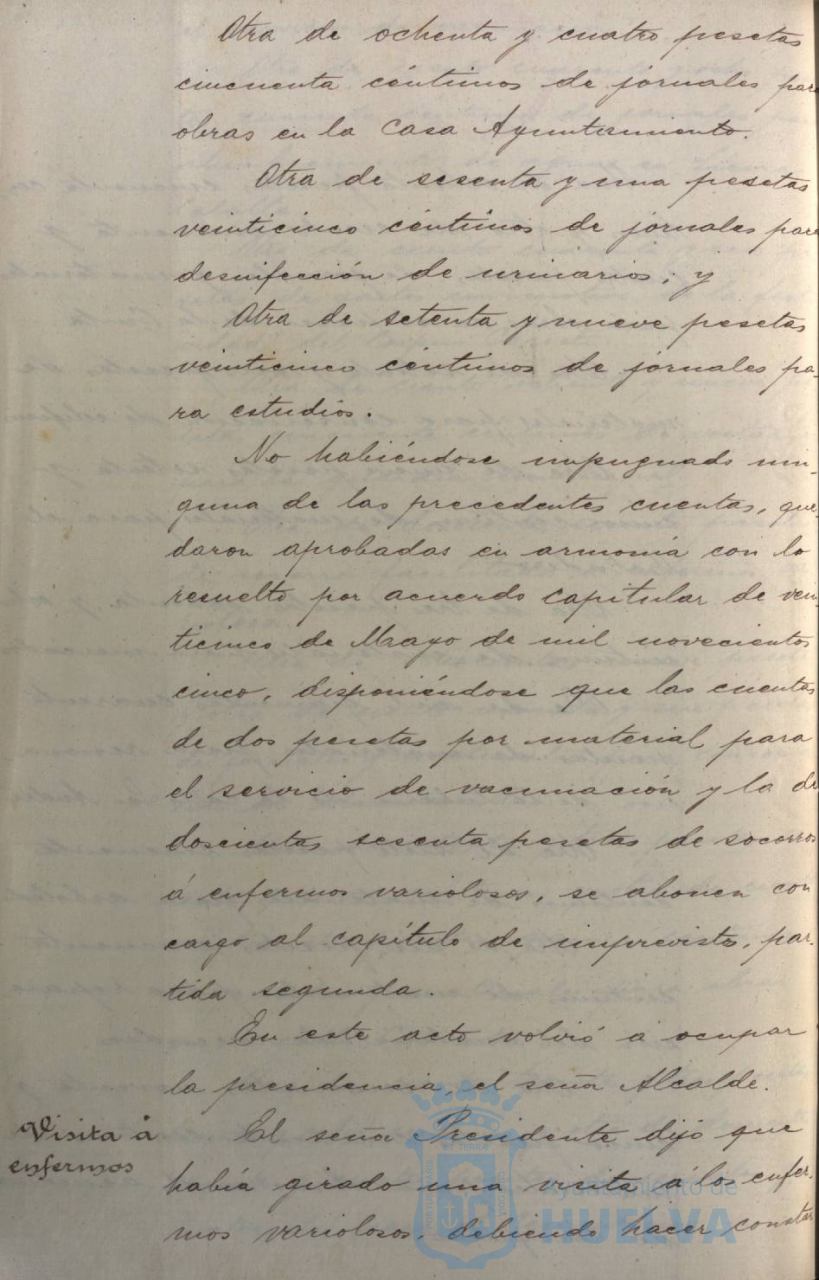 Otra de ochenta y cuatro pesetas
cincuenta céntimos de jornales para
obras en la Casa Ayuntamiento.
Otra de sesenta y una pesetas
veinticinco céntimos de jornales para
desinfección de urinarios; y
Otra de setenta y nueve pesetas
veinticinco céntimos de jornales pa-
ra estudios.
No habiéndose impugnado nin-
guna de las precedentes cuentas, que-
daron aprobadas en armonía con lo
resuelto por acuerdo capitular de vein-
ticinco de Mayo de mil novecientos
cinco, disponiéndose que las cuentas
de dos pesetas por material para
el servicio de vacunación y la de
doscientas sesenta pesetas de socorros
á enfermos variolosos, se abonen con
cargo al capítulo de imprevistos, par-
tida segunda.
En este acto volvió á ocupar
la presidencia el señor Alcalde.
Visita á
enfermos
El señor Presidente dijo que
había girado una visita á los enfer-
mos variolosos, debiendo hacer constar
Ayuntamiento de
HUELVA